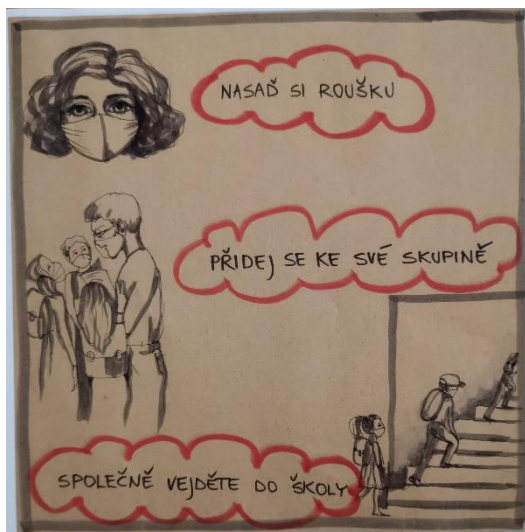 NASAĎ SI ROUŠKU
PŘIDEJ SE KE SVÉ SKUPINĚ
SPOLEČNĚ VEJDĚTE DO ŠKOLY